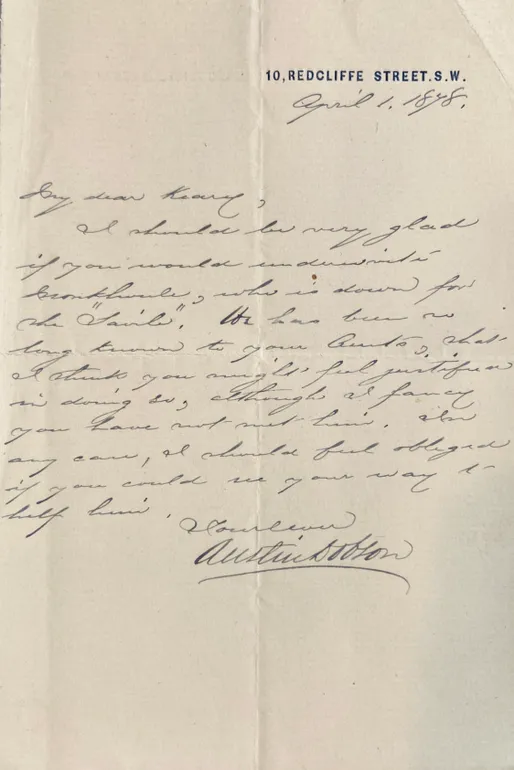 10, REDCLIFFE STREET. S.W.
April 1. 1878.
My dear Keary,
I should be very glad
if you would underwrite
Monkhouse, who is down for
the "Savile". He has been so
long known to your Aunts, that
I think you might feel justified
in doing so, although I fancy
you have not met him. In
any case, I should feel obliged
if you could see your way to
help him.
Yours ever
Austin Dobson